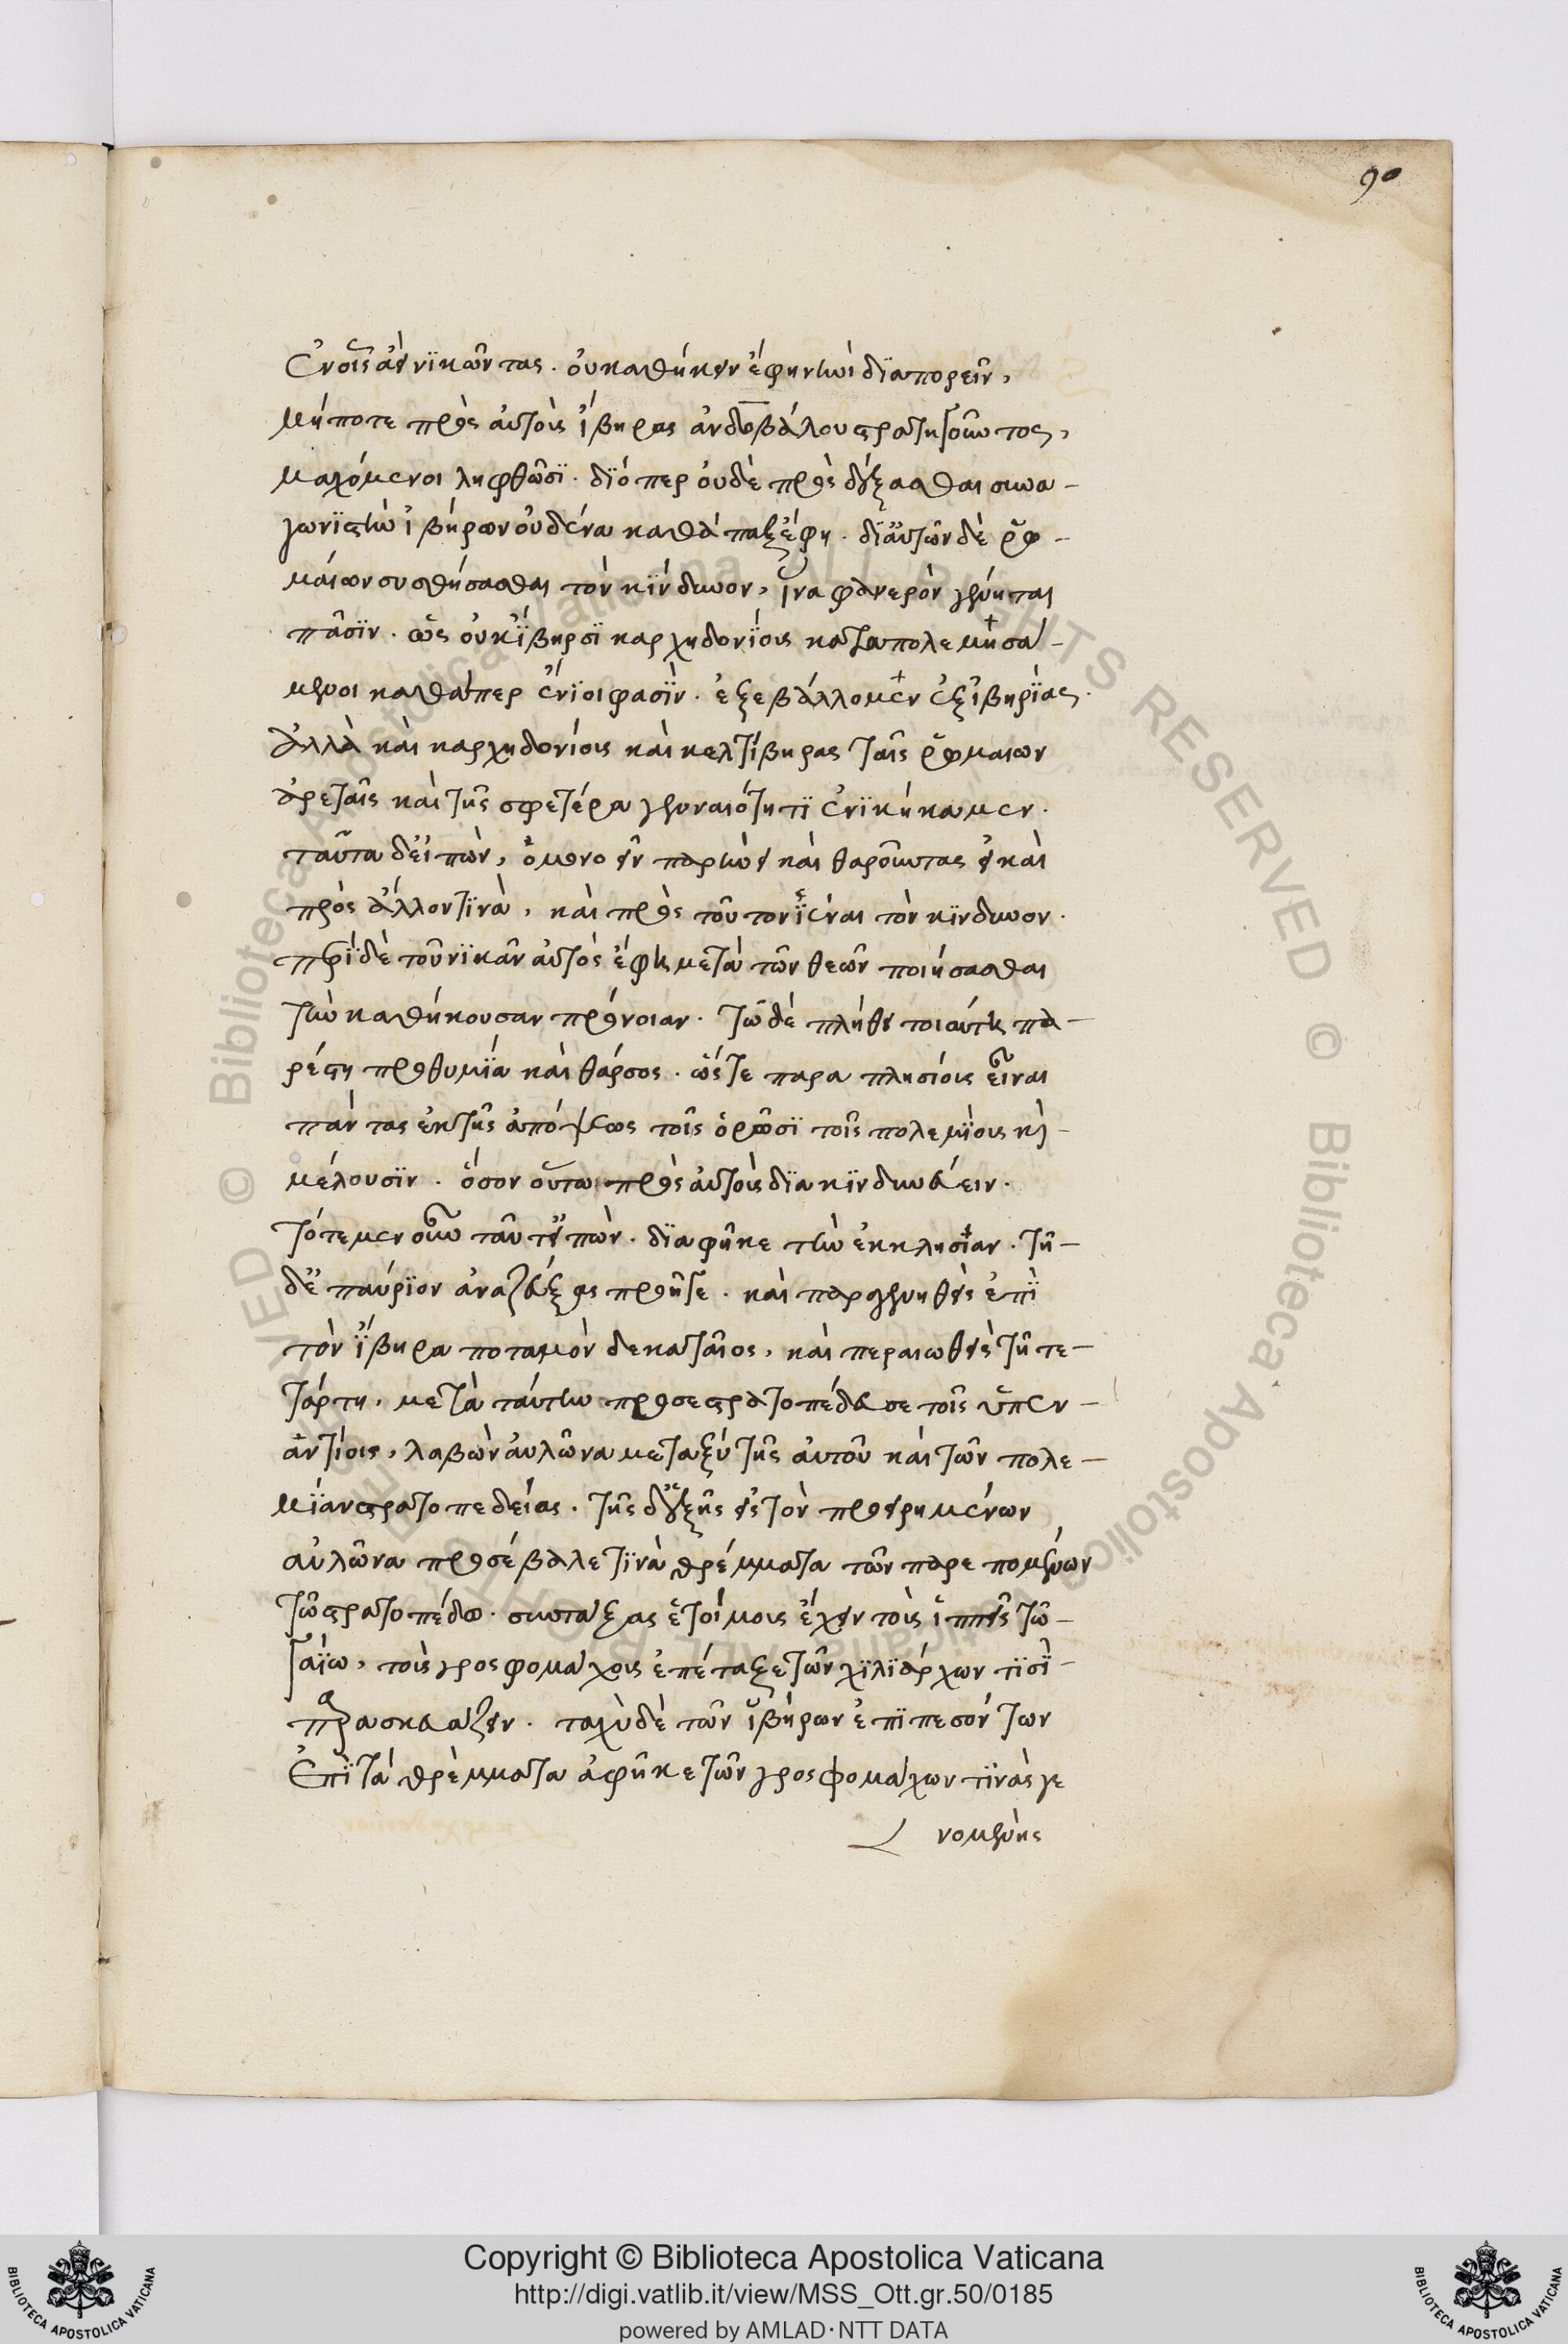 90
ἐν οἷς ἀεὶ νικῶντας. οὐ καθήκειν ἔφη νῦν διαπορεῖν,
μήποτε πρὸς αὐτοὺς ἴβηρας ἀνδοβάλου στρατηγοῦντος,
μαχόμενοι λειφθῶσι. διόπερ οὐδὲ προσδέξασθαι συνα-
γωνιστὴν ἰβήρων οὐδένα καθάπαξ ἔφη. δι' αὐτῶν δὲ ῥω-
μαίων συσθήσασθαι τὸν κίνδυνον, ἵνα φανερὸν γένηται
πᾶσιν. ὡς οὐκ ἴβηρσι καρχηδονίους καταπολεμησά-
μενοι καθάπερ ἔνιοι φασίν. ἐξεβάλλομεν ἐξ ἰβηρίας.
ἀλλὰ καὶ καρχηδονίους καὶ κελτίβηρας ταῖς ῥωμαίων
ἀρεταῖς καὶ τῆς σφετέρα γενναιότητι ἐνικήκαμεν.
ταῦτα δ' εἰπὼν, ὁμονοεῖν παρῄνει καὶ θαροῦντας εἰ καὶ
πρὸς ἄλλον τινὰ, καὶ πρὸς τοῦτον ἰέναι τὸν κίνδυνον.
περὶ δὲ τοῦ νικᾶν αὐτὸς ἔφη μετὰ τῶν θεῶν ποιήσασθαι
τὴν καθήκουσαν πρόνοιαν. τῷ δὲ πλήθει τοιαύτη πα-
ρέστη προθυμία καὶ θάρσος. ὥστε παραπλησίους εἶναι
πάντας ἐκ τῆς ἀπόψεως τοῖς ὁρῶσι τοῖς πολεμίους καὶ
μέλουσιν. ὅσον οὔπω πρὸς αὐτοὺς διακινδυνεύειν.
τότε μὲν οὖν ταῦτ' εἰπὼν. διαφῆκε τὴν ἐκκλησίαν. τῇ
δ' ἐπαύριον ἀναζεύξας προῆγε. καὶ παραγενηθεὶς ἐπὶ
τὸν ἴβηρα ποταμὸν δεκαταῖος, καὶ περαιωθεὶς τῇ τε-
τάρτῃ, μετὰ ταύτην προσεστρατοπέδευσε τοῖς ὑπεν-
αντίοις, λαβὼν αὐλῶνα μεταξύ τῆς αὐτοῦ καὶ τῶν πολε-
μίαν στρατοπεδείας. τῆς δ' ἑξῆς εἰς τὸν προειρημένων
αὐλῶνα προσέβαλε τινὰ θρέμματα τῶν παρεπομένων
τῷ στρατοπέδῳ. συντάξας ἑτοίμους ἔχειν τοὺς ἱππεῖς τῷ
γαΐῳ, τοὺς γροσφομάχους ἐπέταξε τῶν χιλιάρχων τισὶ
παρασκευάζειν. ταχὺ δὲ τῶν ἰβήρων ἐπιπεσόντων
ἐπὶ τὰ θρέμματα ἀφῆκε τῶν γροσφομάχων τινὰς γε
νομένης
Copyright © Biblioteca Apostolica Vaticana
http://digi.vatlib.it/view/MSS_Ott.gr.50/0185
powered by AMLAD·NTT DATA